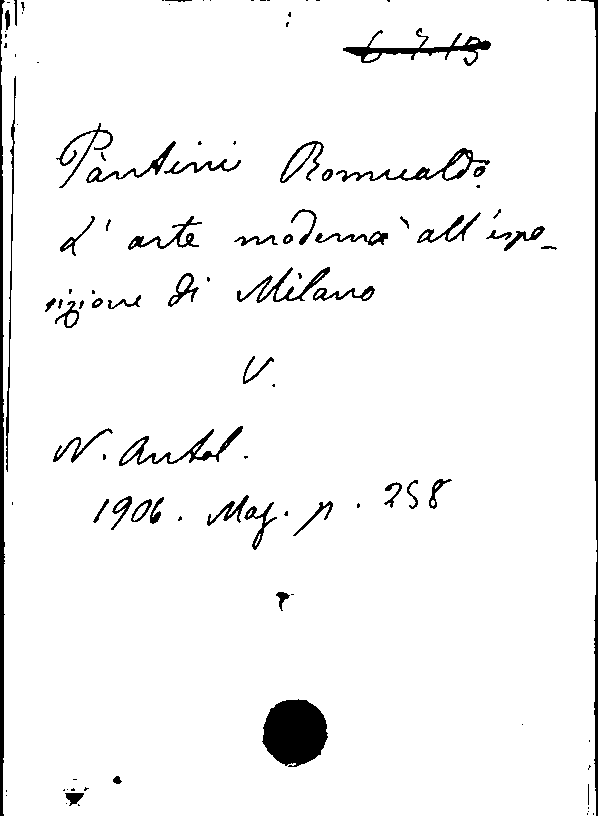 6.7.13
Pàntini Romualdo.
L' arte moderna all'espo-
sizione di Milano
V.
N. Antol.
1906. Mag. p. 258